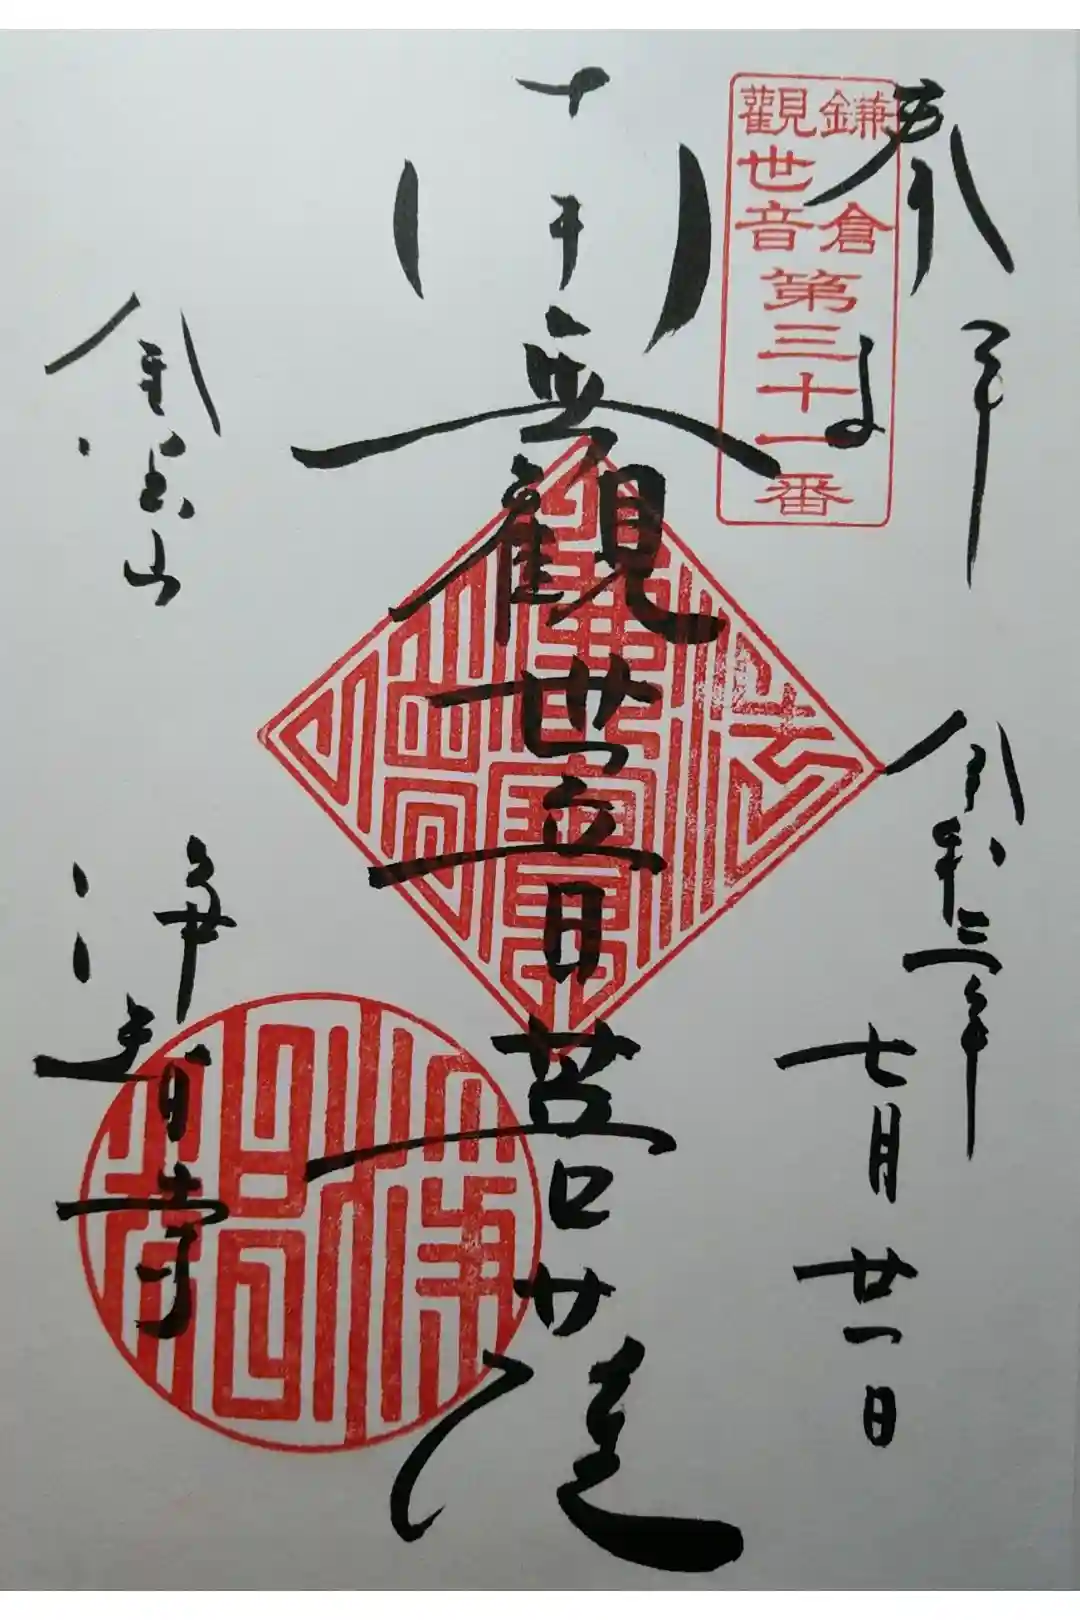 奉拝
令和三年
七月廿一日
鎌倉
觀世音
第三十一番
南無観世音菩薩
金宝山
浄智寺